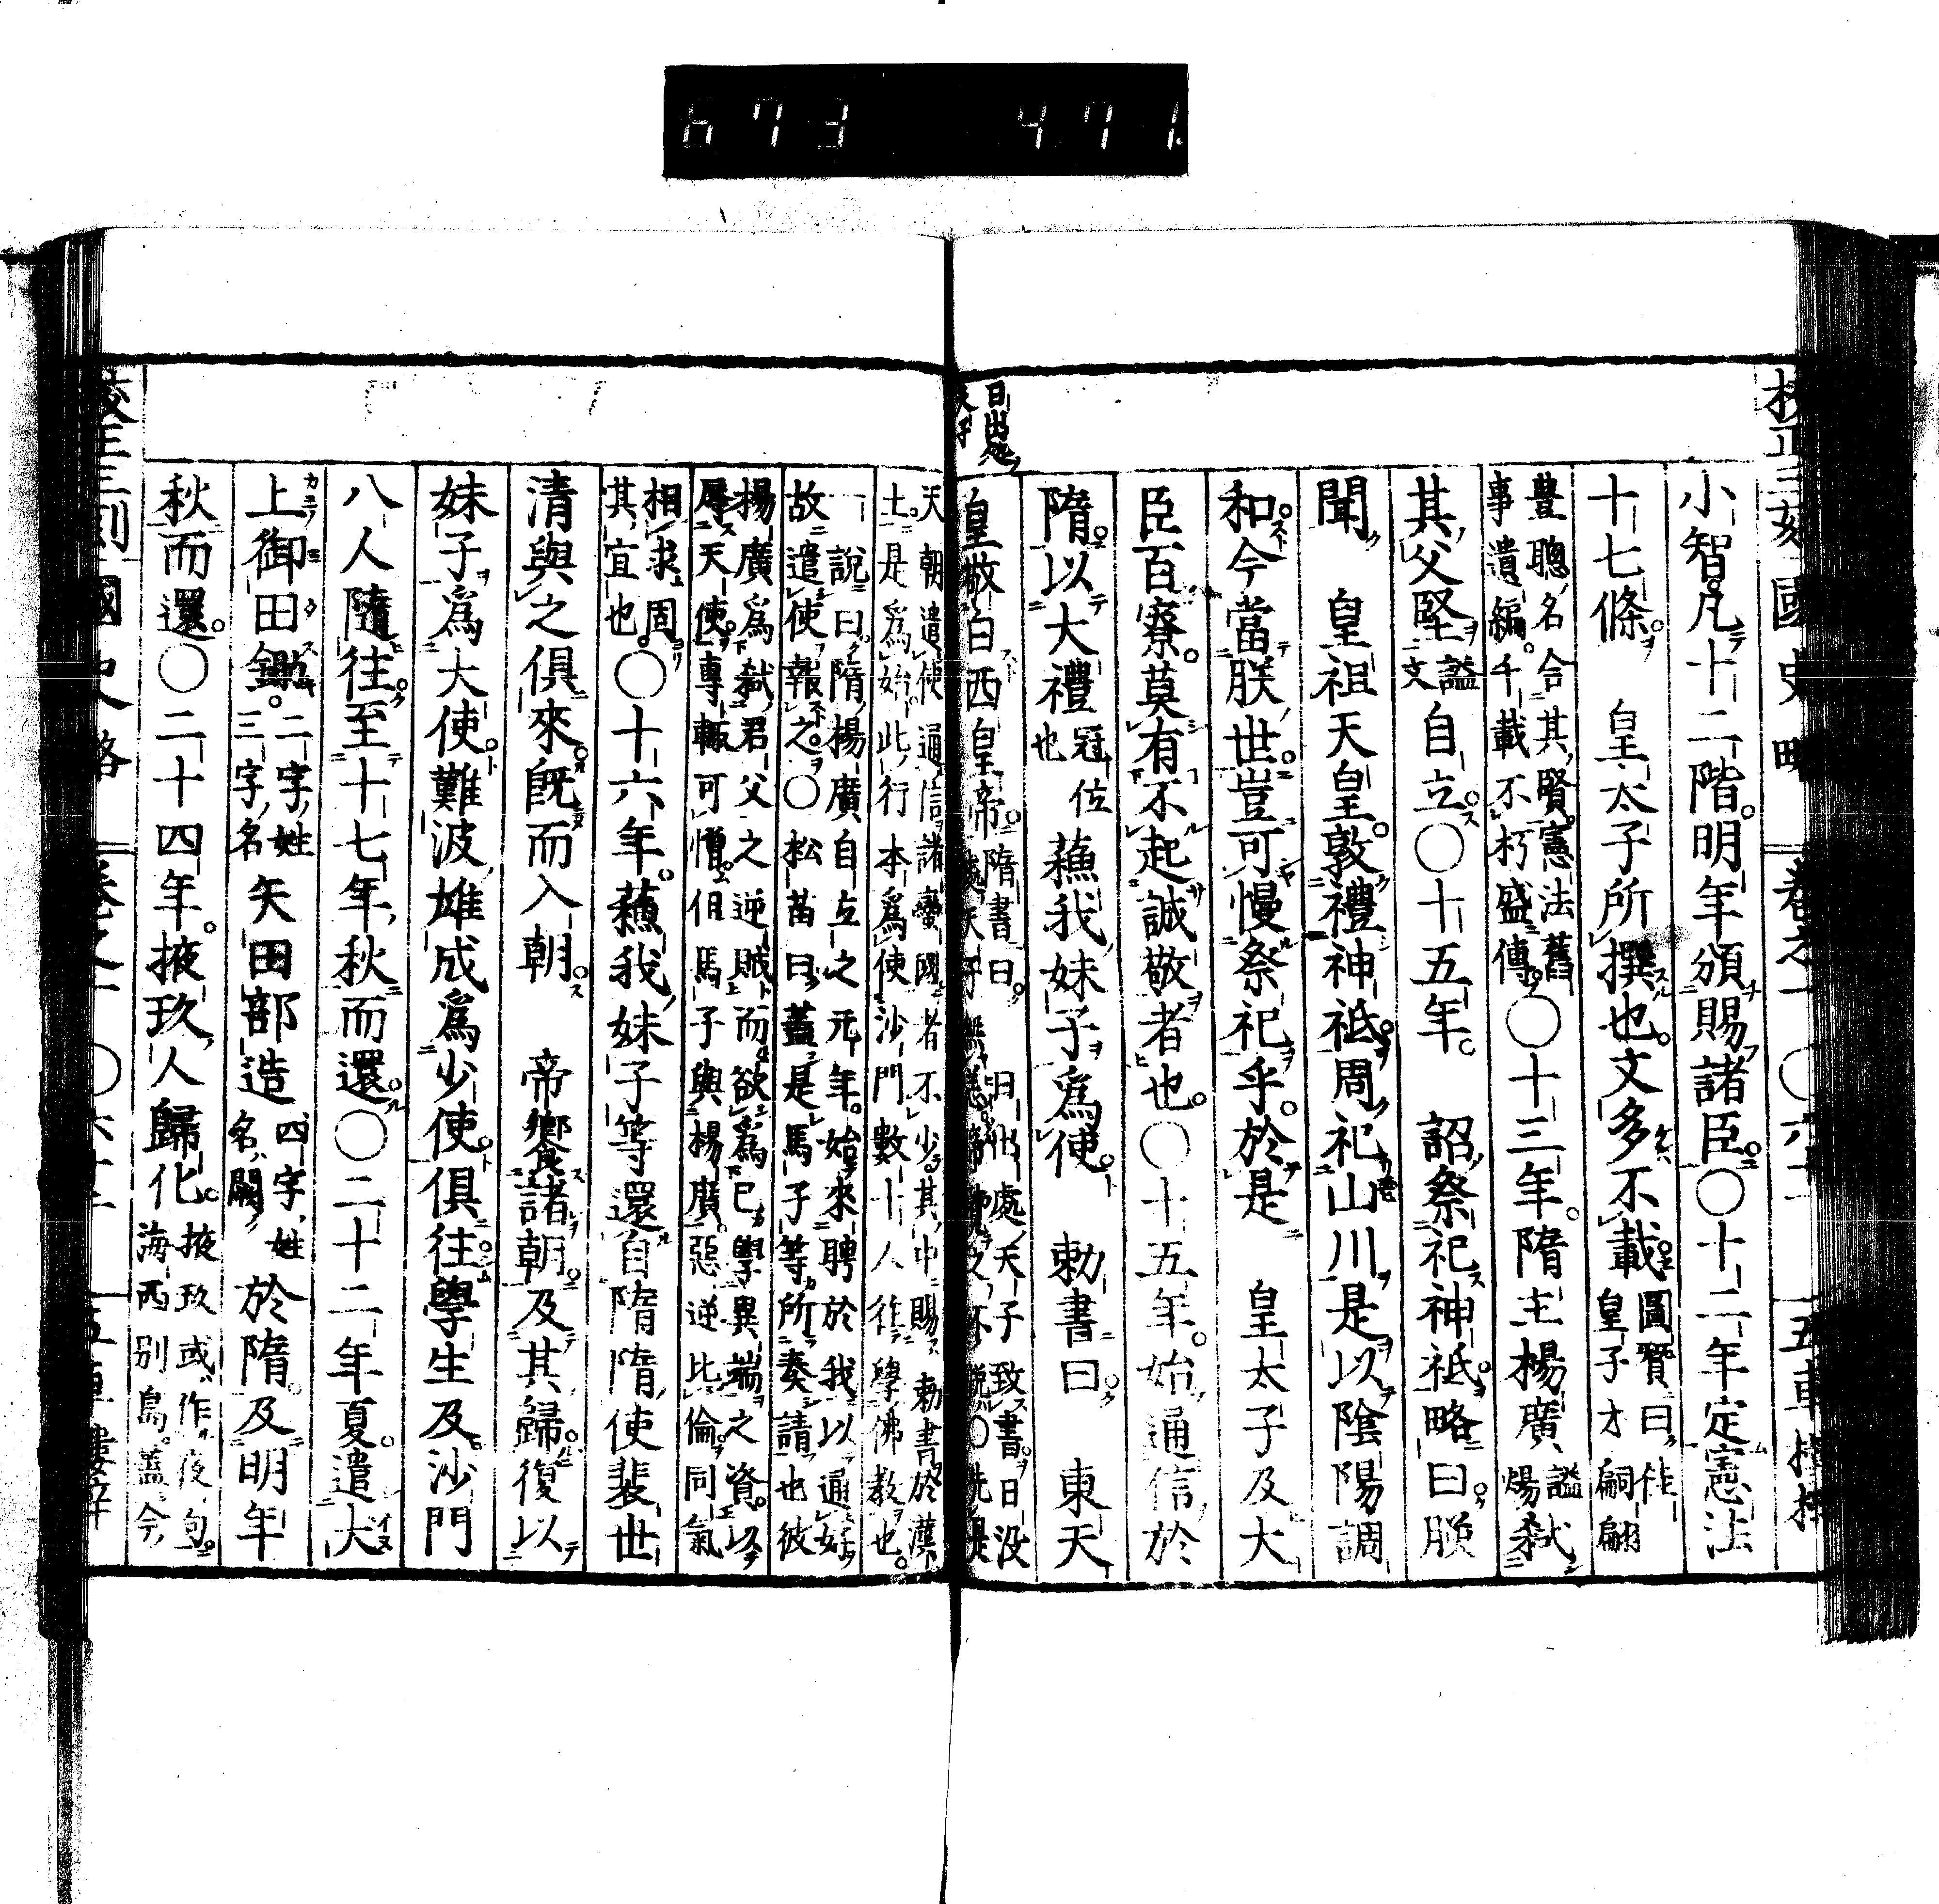 673 471
校正三刻國史略 卷之一 ○六十一 五車樓梓
小智凡十二階明年頒賜諸臣○十二年定憲法
十七條 皇太子所撰也文多不載
圖賢曰 徃
皇子才嗣翮
豊聰名合其賢憲法舊
事遺編千載不朽盛傳
○十三年隋主楊廣
謚煬
弑
其父堅
謚
文
自立○十五年 詔祭祀神祇略曰朕
聞 皇祖天皇敦禮神祇周祀山川是以陰陽調
和今當朕世豈可慢祭祀乎於是 皇太子及大
臣百寮莫有不起誠敬者也○十五年始通信於
隋以大禮
冠位
也
蘓我妹子爲使 勅書曰 東天
日出處
天子
皇敬白西皇帝
隋書曰 日出處天子致書日没
處天子無恙
天朝遣使通信諸蠻國者不少其中賜勅書於漢
土是爲始此行本爲使沙門數十人徃學佛教也
一說曰隋楊廣自立之元年始來聘於我以通好
故遣使報之○松苗曰蓋是馬子等所奏請也彼
楊廣爲弑君父之逆賊而欲爲已學異端之資以
辱天使專輙可憎但馬子與楊廣惡逆比倫同氣
相求固
其宜也
○十六年蘓我妹子等還自隋隋使裴世
清與之俱來旣而入朝 帝饗諸朝及其歸復以
妹子爲大使難波雄成爲少使俱往學生及沙門
八人隨往至十七年秋而還○二十二年夏遣犬
上御田鍬
二字姓
三字名
矢田部造
四字姓
名闕
於隋及明年
秋而還○二十四年掖玖人歸化
掖玖或作夜句
海西別島蓋今
校正三刻國史略 卷之一 ○六十一 五車樓梓